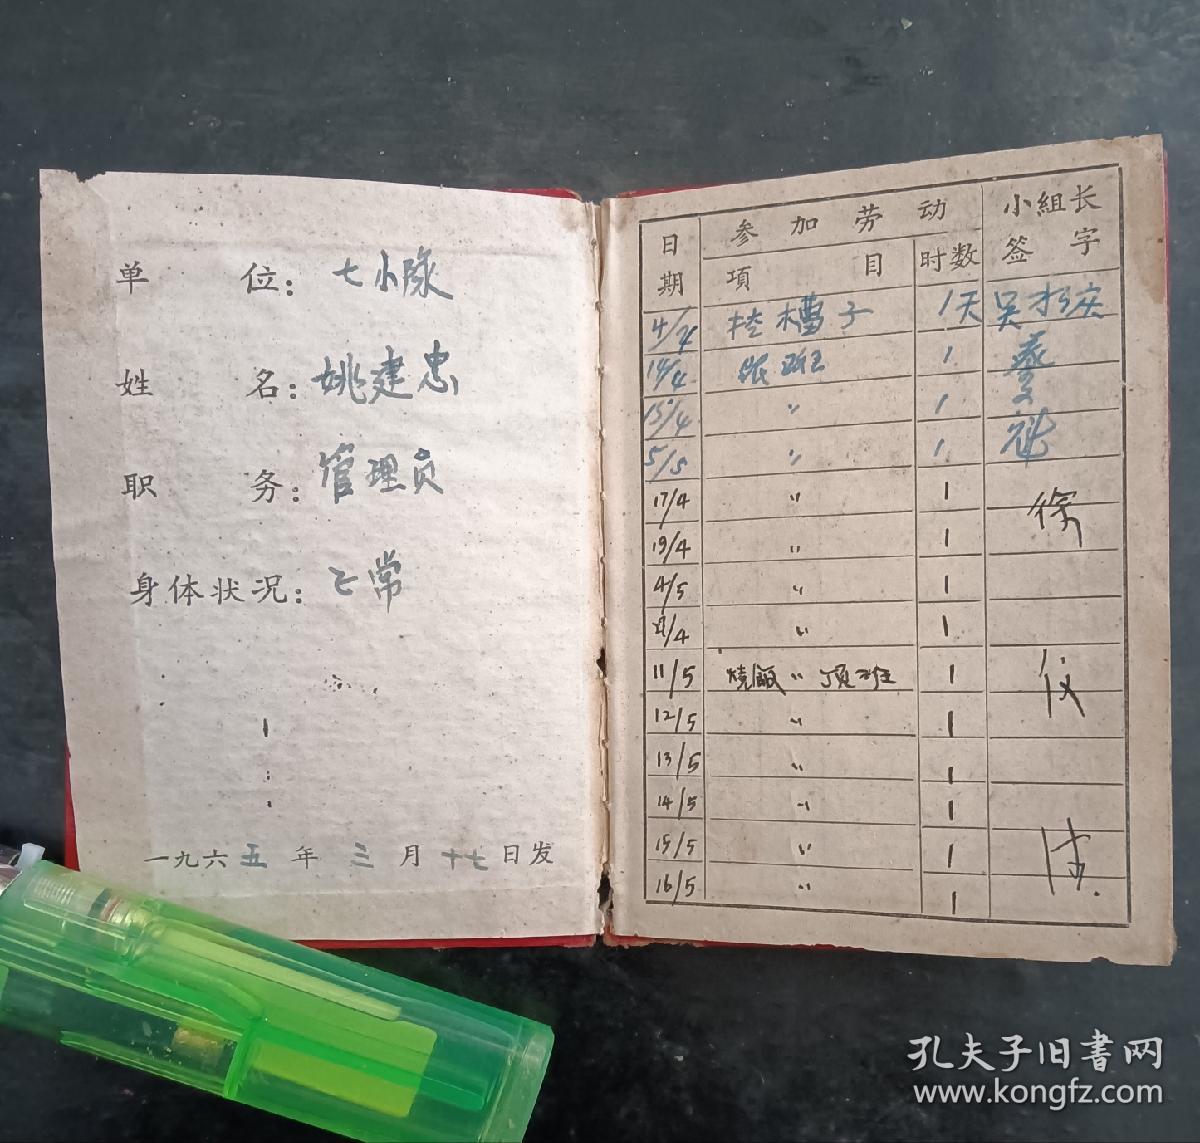 单位：七小隊
姓名：姚建忠
职务：管理员
身体状况：正常
一九六五年三月十七日发
日期 参加劳动 小組长签字
項目 时数
4/4 槽子 1天
14/4 跟班 1
15/4 〃 1
5/5 〃 1
17/4 〃 1 徐
19/4 〃 1
4/5 〃 1
/4 〃 1
11/5 烧飯〃顶班 1
12/5 〃 1
13/5 〃 1
14/5 〃 1
15/5 〃 1
16/5 〃 1
孔夫子旧書网
www.kongfz.com